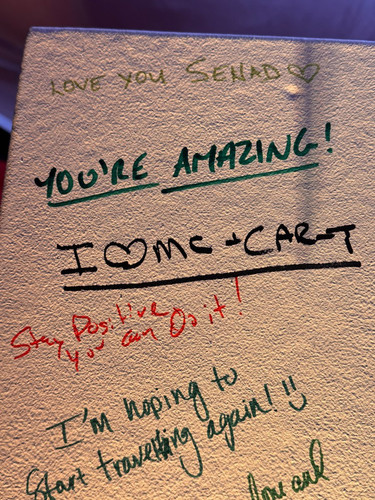 LOVE YOU SENAD ♡
YOU'RE AMAZING!
I ♡ MC - CAR-T
Stay Positive
You can Do it!
I'm hoping to
Start travelling again! :)
and